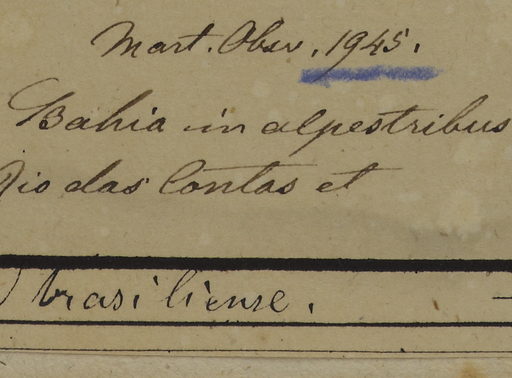 Mart. Obsv. 1945.
Bahia in alpestribus
Rio das Contas et
brasiliense.